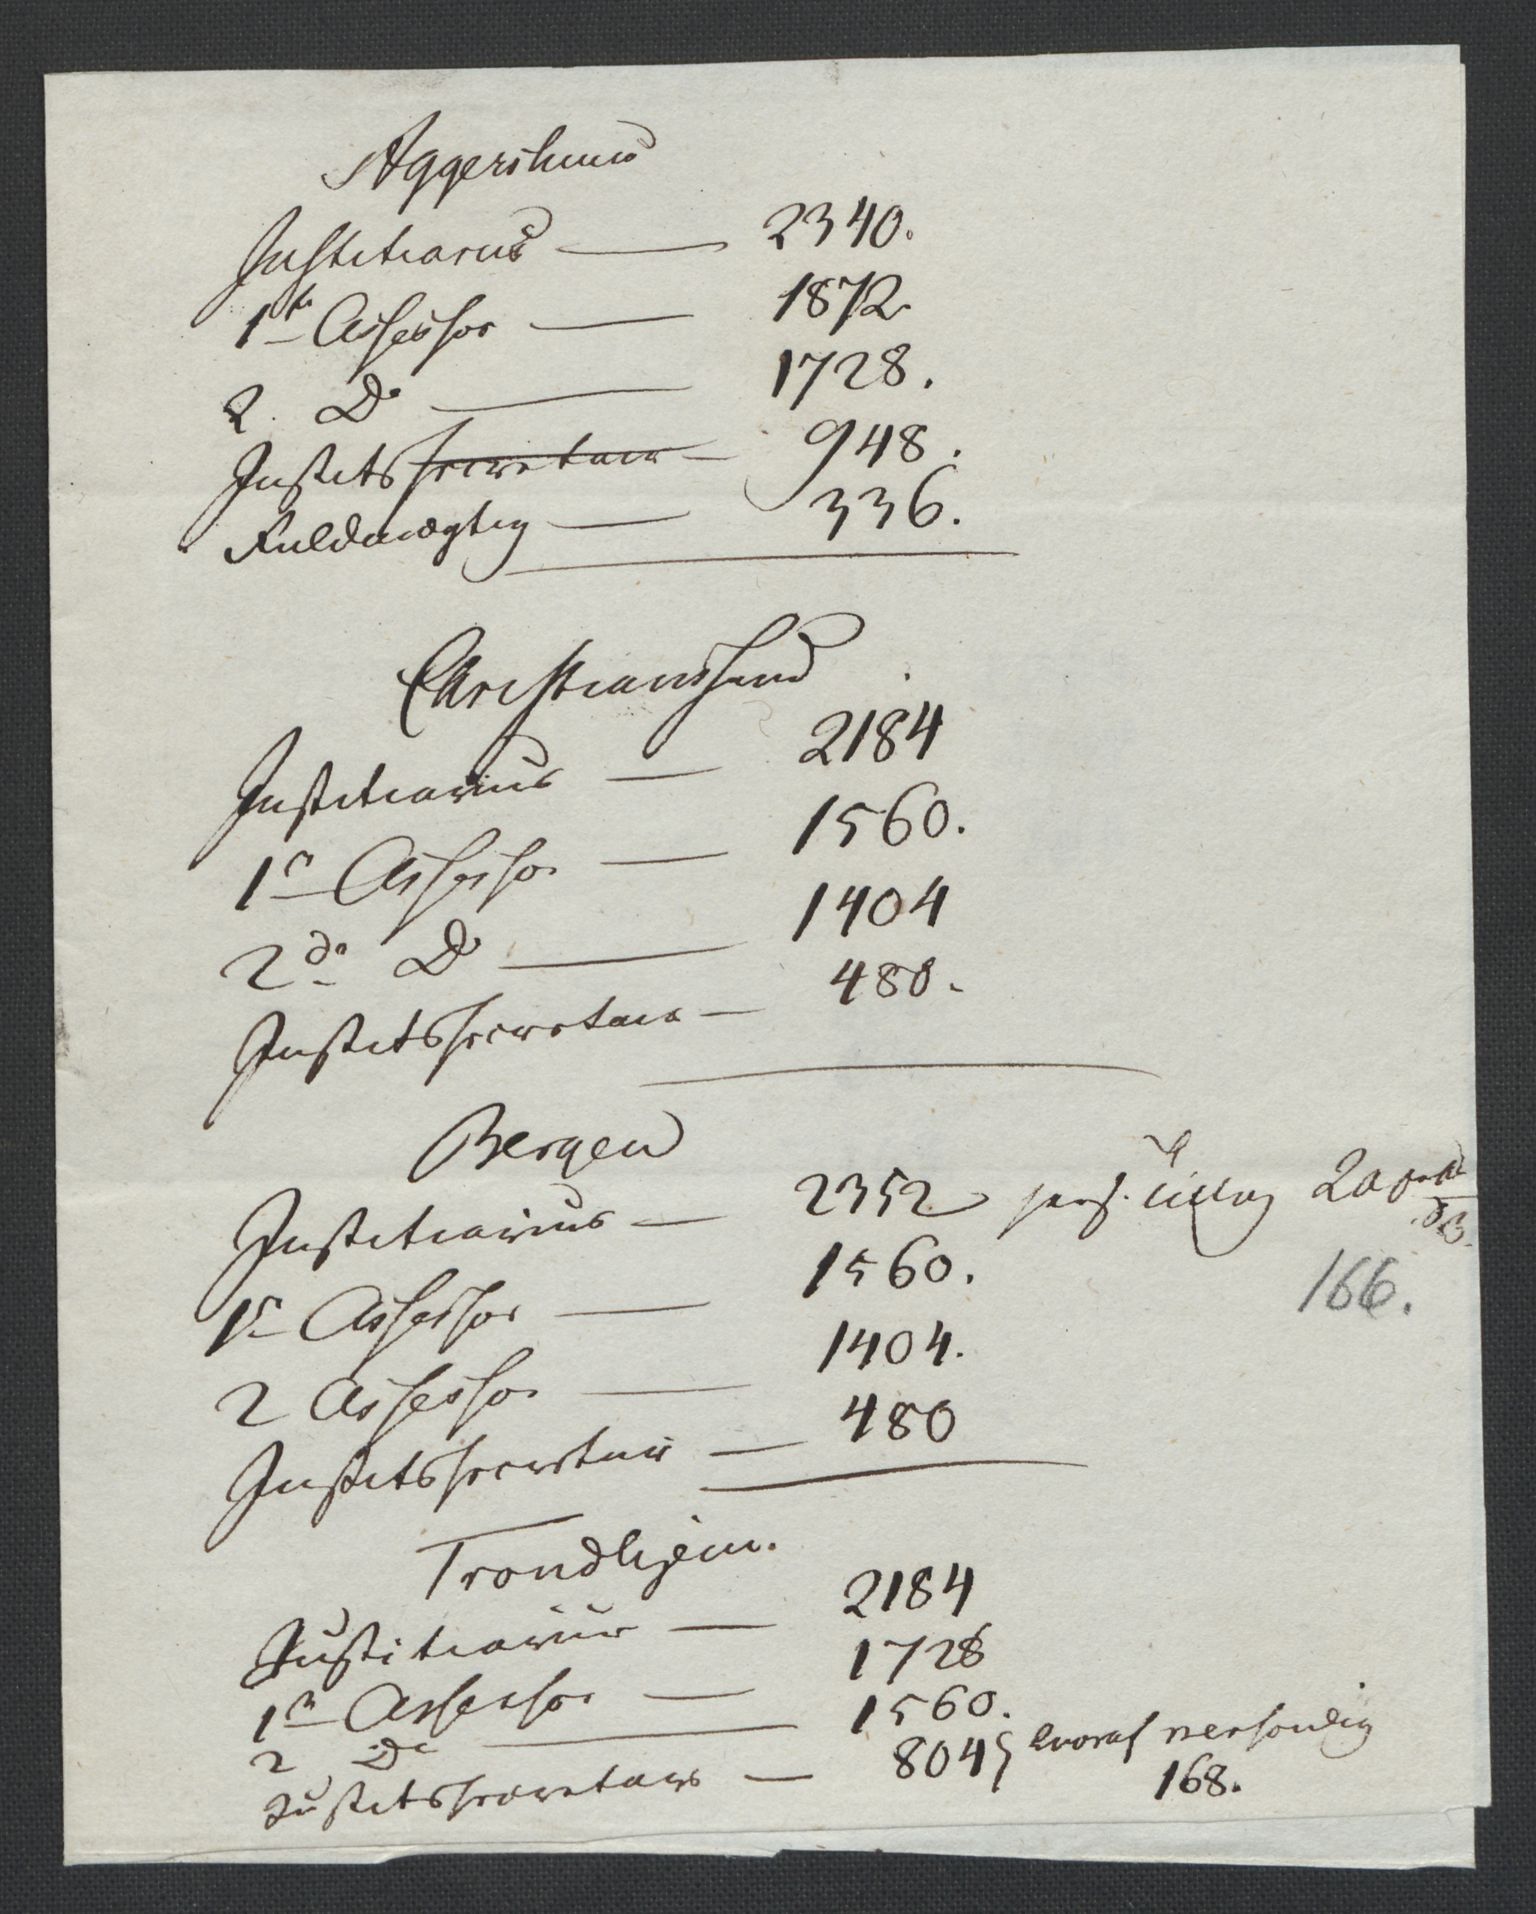 Aggershuus
Justitiarius — 2340.
1ste Assessor — 1872
2. Do — 1728.
Justitssecretair — 948.
Fuldmægtig — 336.
Christianssand
Justitiarius — 2184
1e Assessor — 1560.
2de Do — 1404
Justitssecretair — 480.
Bergen
Justitiarius — 2352 pers. Tillæg 200
1e Assessor — 1560.
166.
2 Assessor — 1404.
Justitssecretair — 480
Trondhjem.
Justitiarius — 2184
1e Assessor — 1728
2 Do — 1560.
Justitssecretair — 804 hvoraf personlig
168.